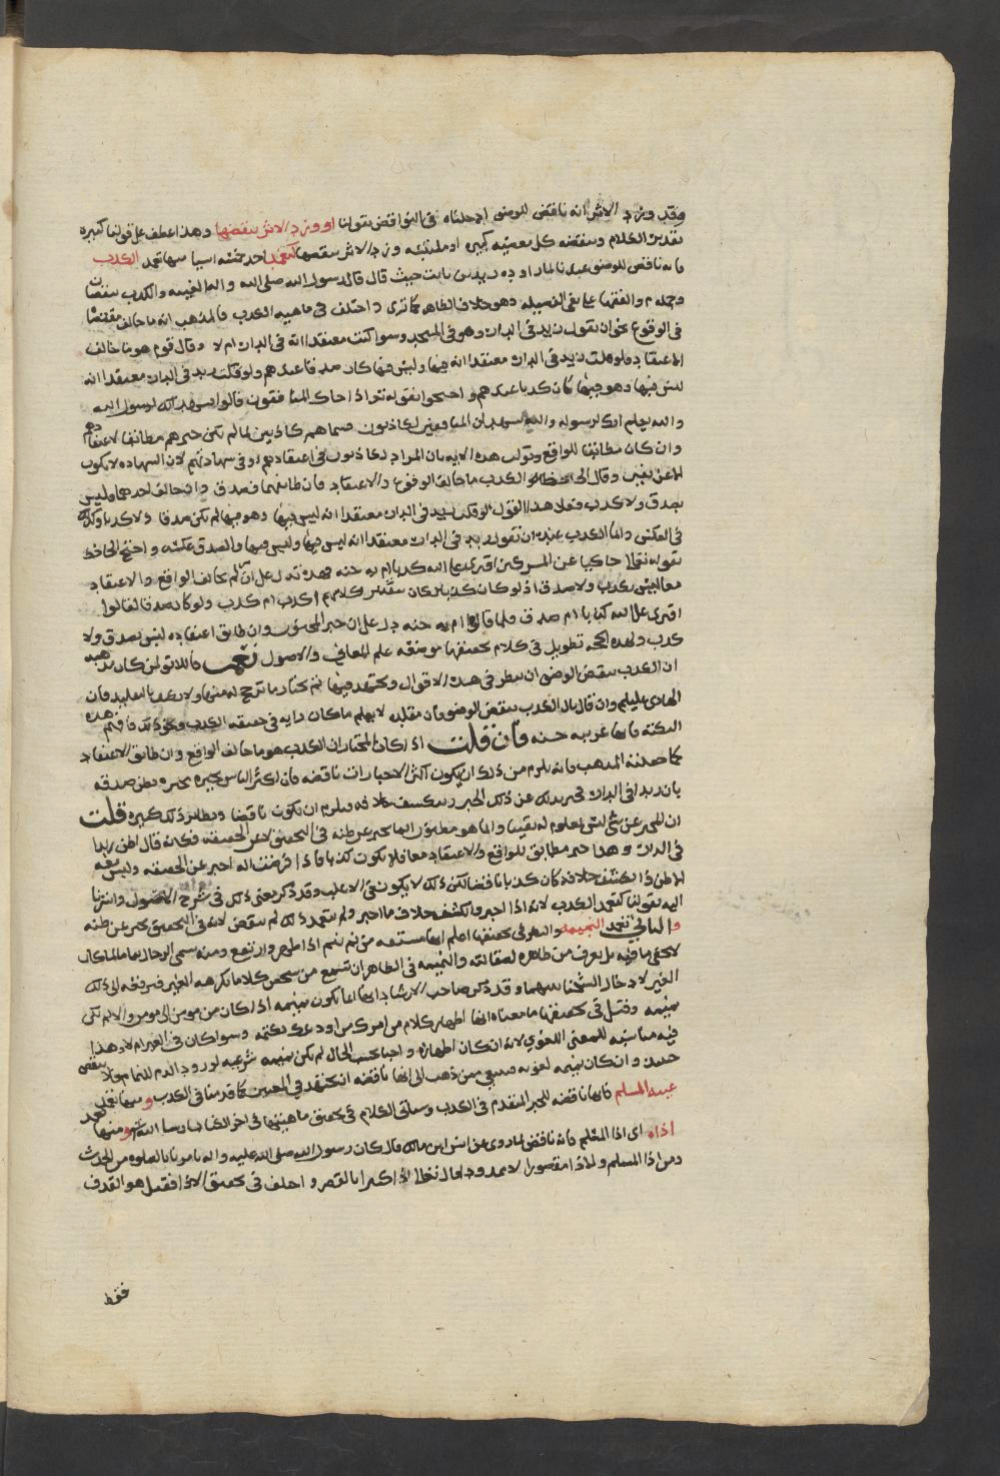 وقد ورد الاثر انه ناقض للوضوء ادخلناه في النواقض بقولنا او ورد الاثر بنقضها وهذا عطف على قولنا كبيرة
تقدير الكلام وينقضه كل معصية كبيرة او ورد الاثر بنقضها كتعمد احد خمسة اشيا منها تعمد الكذب
فانه ناقض للوضوء عندنا لما رواه زيد بن ثابت حيث قال قال رسول الله صلى الله واله الغيبة والكذب ينقضان
وهو خلاف الظاهر كما ترى واختلف في ماهية الكذب فالمذهب انه ما خالف
في الوقوع نحو ان يقول زيد في الدار وهو في المسجد وسوا كنت معتقدا انه في الدار ام لا وقال قوم هو ما خالف
الاعتقاد فلو قلت زيد في الدار معتقدا انه فيها وليس فيها كان صدقا عندهم ولو قلت زيد في الدار معتقدا انه
ليس فيها وهو فيها كان كذبا عندهم واحتجوا بقوله تعالى اذا جاك المنافقون قالوا نشهد انك لرسول الله
والله يعلم انك لرسوله والله يشهد ان المنافقين لكاذبون فسماهم كاذبين لما لم يكن خبرهم مطابقا لاعتقادهم
وان كان مطابقا للواقع هذه الاية بان المراد لكاذبون في اعتقادهم او في شهادتهم لان الشهادة لا تكون
الا عن يقين وقال الجاحظ الكذب ما خالف الوقوع والاعتقاد فان طابقهما فصدق وان خالف احدهما فليس
بصدق ولا كذب فعلى هذا القول لو قلت زيد في الدار معتقدا انه ليس فيها وهو فيها لم يكن صدقا ولا كذبا وكذلك
في العكس وانما الكذب عنده ان تقول زيد في الدار معتقدا انه ليس فيها وليس فيها والصدق عكسه واحتج الجاحظ
بقوله تعالى حاكيا عن المشركين افترى على الله كذبا ام به جنة فهذه تدل على ان ما لم يخالف الواقع والاعتقاد
معا ليس بكذب ولا صدق اذ لو كان كذبا لكان تقدير كلامهم اكذب ام كذب ولو كان صدقا لقالوا
افترى على الله كذبا ام صدق فلما قالوا ام به جنة دل على ان خبر المجنون وان طابق اعتقاده ليس بصدق ولا
كذب ولهذه الحجة تطويل في كلام تحقيقها موضعه علم المعاني والاصول نعم فاللائق لمن كان مذهبه
ان الكذب ينقض الوضوء ان ينظر في هذه الاقوال ويجتهد فيها ثم يختار ما ترجح له منها ولا يكفيه التقليد فان
الهادي عليلم وان قال بان الكذب ينقض الوضوء فان مقلده لا يعلم ما كان رايه في حقيقة الكذب ونحو ذلك فافهم هذه
النكتة فانها غريبة حسنة فان قلت اذا كان المختار ان الكذب هو ما خالف الواقع وان طابق الاعتقاد
كما المذهب فانه يلزم من ذلك ان يكون اكثر الاخبارات ناقضة فان اكثر الناس يخبره مخبره يظن صدقه
بان زيدا في الدار فيخبر بذلك عن ذلك الخبر ثم ينكشف خلافه فيلزم ان يكون ناقضا ونظائر ذلك كثيرة قلت
ان المخبر عن شي ليس بمعلوم له يقينا وانما هو مظنون انما يخبر عن ظنه في التحقيق لا عن الحقيقة فكانه قال اظن زيدا
في الدار وهذا خبر مطابق للواقع والاعتقاد معا فلا يكون كذبا فاذا فرضت انه اخبر عن الحقيقة وليس معه
الا ظن وانكشف خلافه كان كذبا ناقضا لكن ذلك لا يكون في الاغلب وقد ذكر معنى ذلك في شرح الاصول واشرنا
اليه بقولنا كتعمد الكذب لانه اذا اخبر وانكشف خلاف ما اخبر ولم يتعمد ذلك لم ينقض لانه في التحقيق مخبر عن ظنه
و الثاني تعمد النميمة والنظر في تحقيقها اعلم انها مشتقة من نم ينم اذا اظهر وارتفع ومنه سمي الريحان نماما لما كان
لا يخفى ما فيه بل يعرف من ظاهره والنميمة في الظاهر ان تسمع من شخص كلاما يكرهه الغير فيرفعه الى ذلك
الغير لادخال الشحنا بينهما وقد ذكر صاحب الارشاد ايضا انما تكون نميمة اذا كان من مومن الى مومن والا لم تكن
نميمة وقيل في تحقيقها ما معناه انها اظهار كلام من امرك من اودعك بكتمه وسوا كان في الغير ام لا وهذا
فيه مناسبة للمعنى اللغوي لانه ان كان اظهاره واجبا بحسب الحال لم تكن نميمة شرعية لورود الذم للنمام فلا ينقض
حينئذ وان كان نميمة لغوية فينبغي ممن ذهب الى انها ناقضة ان يجتهد في كما قدمنا في الكذب و منها تعمد
غيبة المسلم فانها ناقضة للخبر المتقدم في الكذب وسياتي الكلام في تحقيق ماهيتها في اخر الكتاب ان شا الله و منها تعمد
اذاه اي اذا المسلم فانه ناقض لما روي عن انس ابن مالك قال كان رسول الله صلى الله عليه واله يامرنا بالصلوة من الحدث
ومن اذا المسلم والاذا مقصور لا ممدود واختلف في تحقيق الاذا فقيل هو القذف
فقط